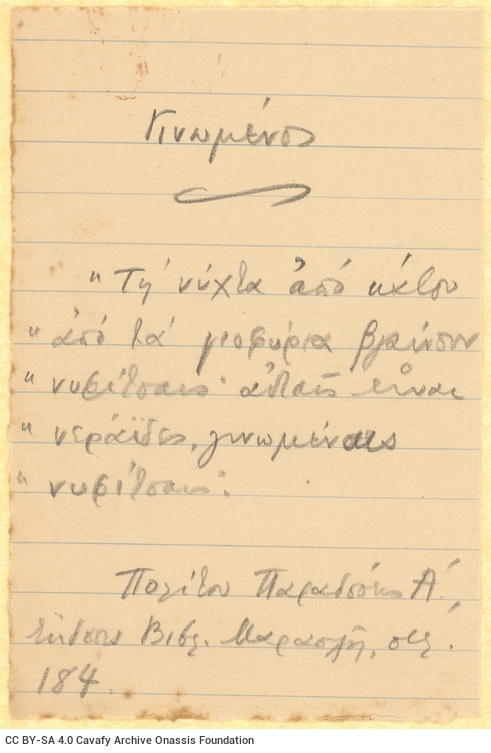 Γινωμένος
"Τη νύχτα από κάτου
"από τα γιοφύρια βγαίνουν
"νυφίτσαις· αυταίς είναι
"νεράιδες, γινωμέναις
"νυφίτσαις.
Πολίτου Παραδόσεις Α΄,
έκδοσις Βιβλ. Μαρασλή, σελ.
184.
CC BY-SA 4.0 Cavafy Archive Onassis Foundation